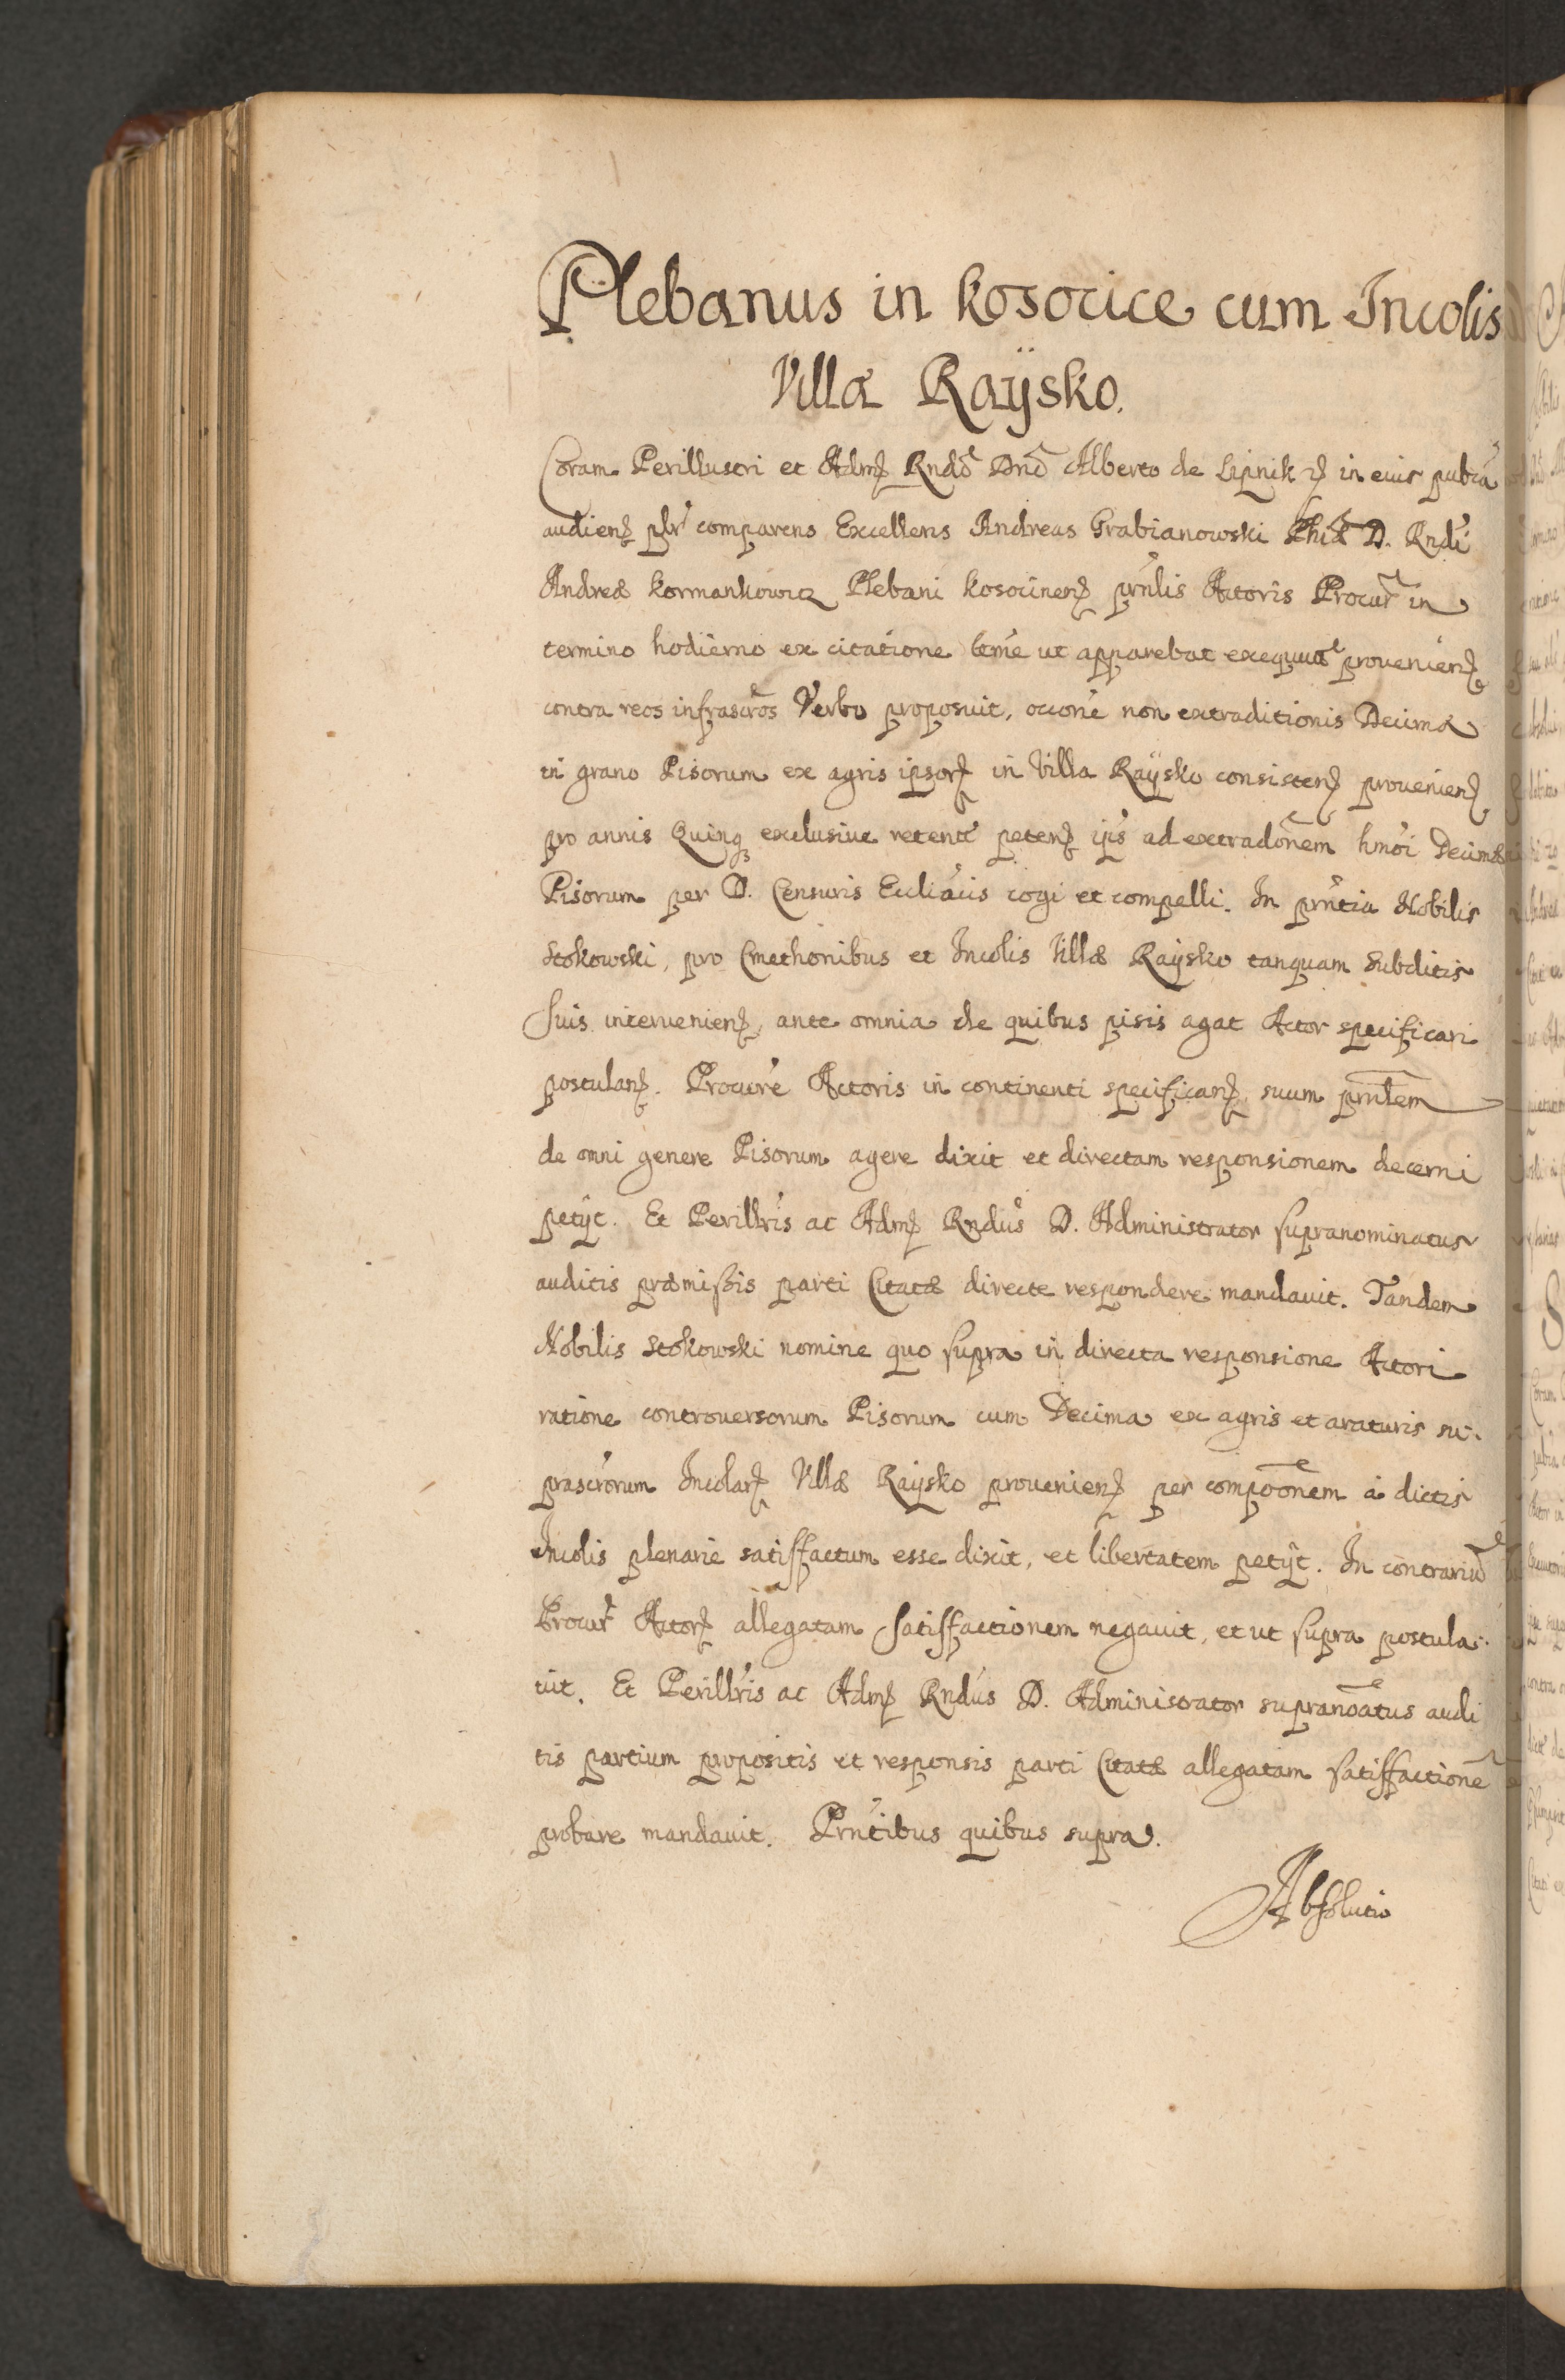 Plebanus in kosocice cum Incolis
Villæ Raÿsko.
Coram Perillustri et Adm̃ Rndõ Dnõ Alberto de Lipnik etc in eius pubca
audien̄ plr̃ comparens Excellens Andreas Grabianowski Phiæ D. Rndi
Andreæ kormankowicz Plebani kosocinen̄ prñlis Actoris Procur̃ in
termino hodierno ex citatione ltmẽ ut apparebat exequuta prouenien̄
contra reos infrascrõs Verbo proposuit, occõne non extraditionis Decimæ
in grano Pisorum ex agris ipsor̄ in Villa Raÿsko consisten̄ prouenien̄
pro annis Quinq̨ exclusiue retentæ peten̄ ip̃s ad extradõnem hmõi Decimæ
Pisorum per D. Censuris Eccliãcis cogi et compelli. In prñtia Nobilis
Stokowski, pro Cmethonibus et Incolis Villæ Raÿsko tanquam Subditis
Suis interuenien̄, ante omnia de quibus pisis agat Actor specificari
postulan̄. Procurẽ Actoris in continenti specifican̄, suum prñlem
de omni genere Pisorum agere dixit et directam responsionem decerni
petÿt. Et Perillr̃is ac Adm̃ Rndũs D. Administrator supranominatus
auditis præmissis parti Citatæ directe respondere mandauit. Tandem
Nobilis Stokowski nomine quo supra in directa responsione Actori
ratione controuersorum Pisorum cum Decima ex agris et araturis su-
prascrõrum Incolar̄ Villæ Raÿsko prouenien̄ per compõonem à dictis
Incolis plenarie satisfactum esse dixit, et libertatem petÿt. In contrariũ
Procur̃ Actor̄ allegatam satisfactionem negauit, et ut supra postula-
uit. Et Perillr̃is ac Adm̃ Rndũs D. Administrator supranõatus audi
tis partium propositis et responsis parti Citatæ allegatam satisfactionẽ
probare mandauit. Prñtibus quibus supra.
Absolutio